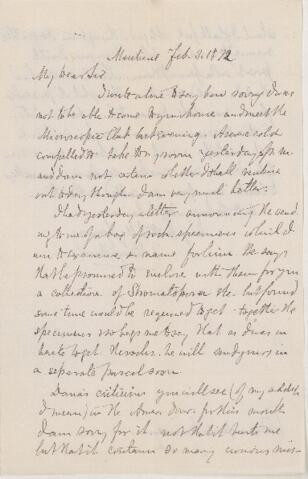 Montreal Feb. 2. 1872
My Dear Sir
I write alone to say how sorry I was
not to be able to come to your house and meet the
Microscopic Club last evening. A severe cold
compelled to take to my room yesterday
and I am not certain whether I shall venture
out today though I am very much better.
I had yesterday a letter announcing the send
ing to me of a box of rock specimens which I
am to examine or name for him. He says
that he promised to enclose with them for you
a collection of Stromatopora &c. but found
some time would be required to get together the
specimens so begs me to say that as I was in
haste to get the rocks. he will send yours in
a separate parcel soon
Dana's criticism you will see (of my address
I mean) in the Amer. Jour. for this month
I am sorry for it. not that it hurts me
but that it contains so many curious mis-